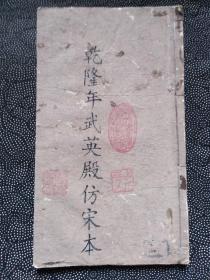 乾隆年武英殿仿宋本